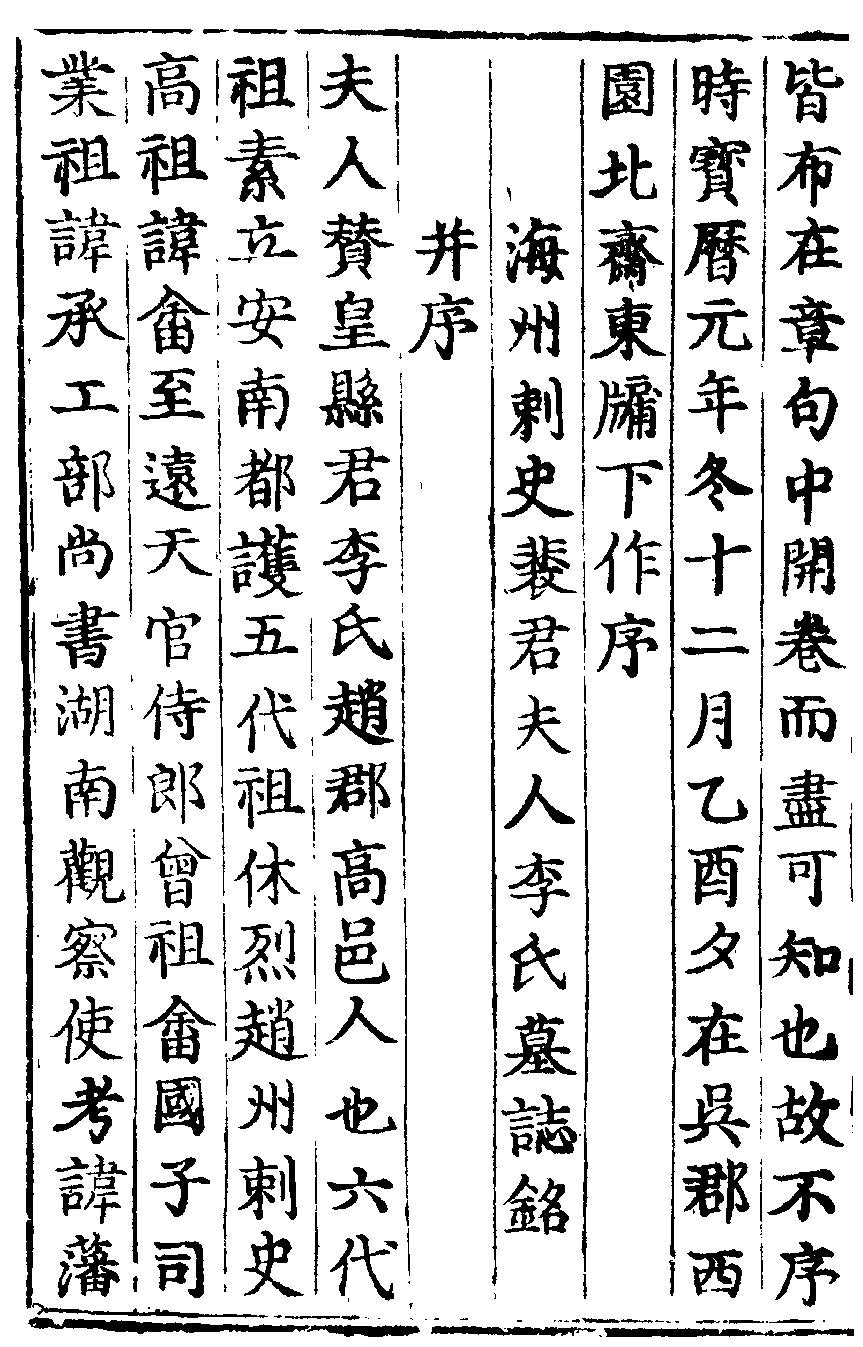 皆布在章句中開卷而盡可知也故不序
時寶曆元年冬十二月乙酉夕在吳郡西
園北齋東牖下作序
海州剌史裴君夫人李氏墓誌銘
并序
夫人賛皇縣君李氏趙郡高邑人也六代
祖素立安南都護五代祖休烈趙州剌史
高祖諱畬至遠天官侍郎曾祖畬國子司
業祖諱承工部尚書湖南觀察使考諱藩